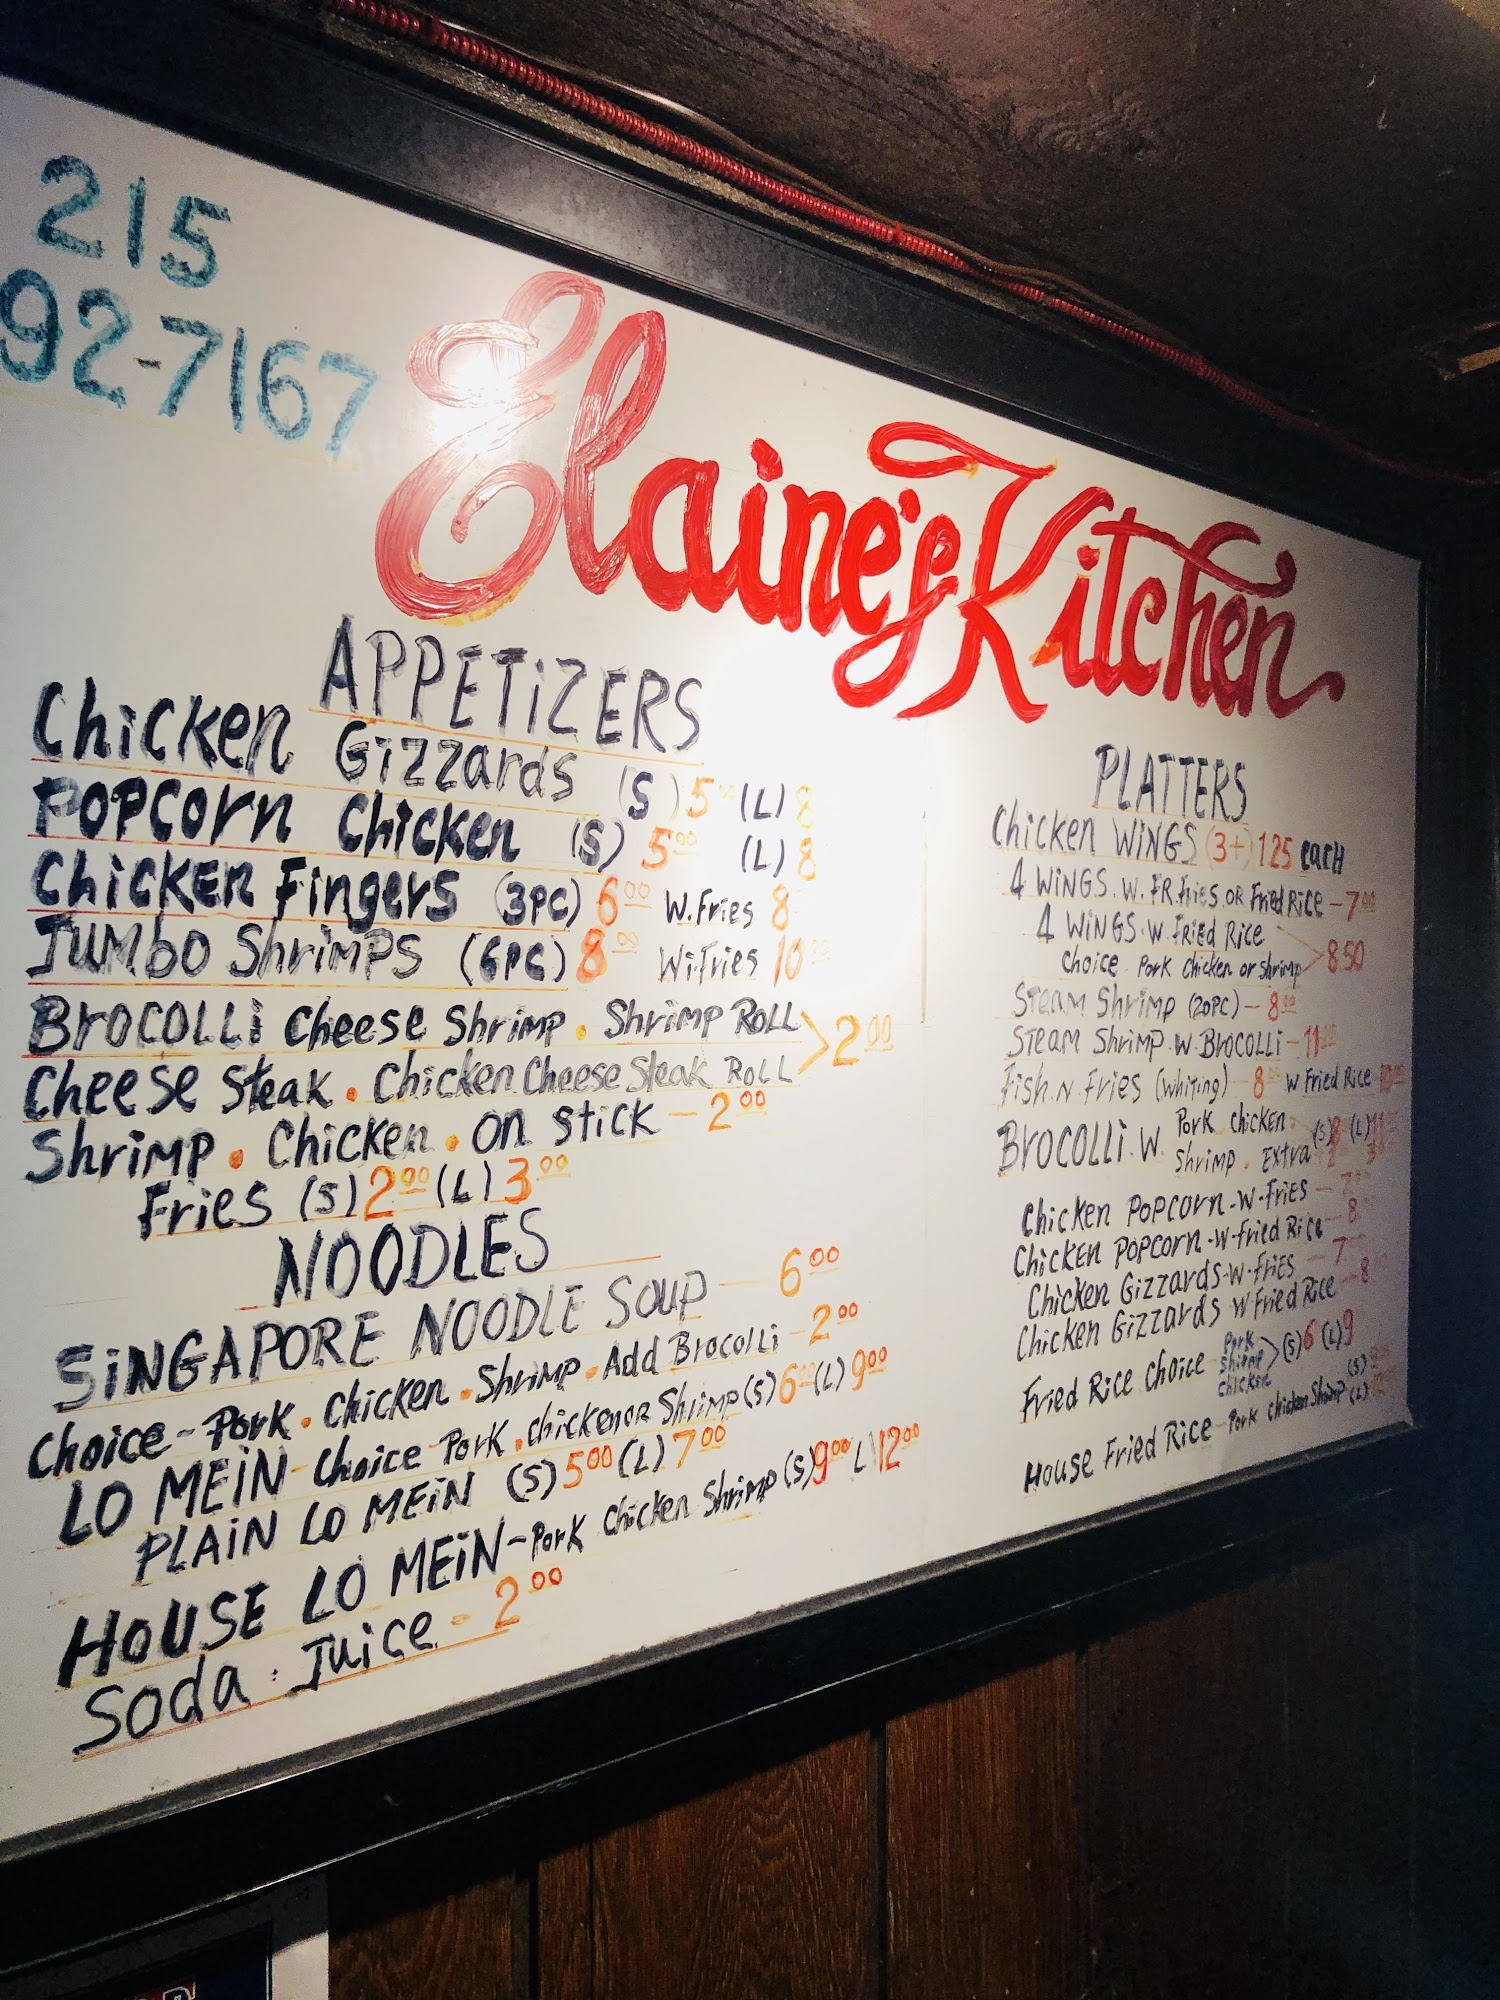 215
92-7167
Elaine's Kitchen
APPETiZERS
Chicken Gizzards (S) 5 00 (L) 8
POPCORN Chicken (S) 5 00 (L) 8
CHiCKEN Fingers (3PC) 6 00 W. Fries 8
JUMBO Shrimps (6PC) 8 00 Wi. Fries 10
BROCOLLi Cheese Shrimp . Shrimp ROLL
Cheese Steak . Chicken Cheese Steak ROLL > 2 00
Shrimp . Chicken . on stick - 2 00
Fries (S) 2 00 (L) 3 00
NOODLES
SiNGAPORE NOODLE SOUP - 6 00
Choice - Pork . Chicken . Shrimp . Add Brocolli - 2 00
LO MEiN - Choice Pork . Chicken OR Shrimp (S) 6 00 (L) 9 00
PLAiN LO MEiN (S) 5 00 (L) 7 00
HOUSE LO MEiN - Pork Chicken Shrimp (S) 9 00 L) 12 00
Soda . Juice - 2 00
PLATTERS
Chicken WiNGS (3+) 125 each
4 WiNGS . W . FR . Fries OR Fried Rice - 7 00
4 WiNGS . W . Fried Rice
choice Pork Chicken or Shrimp > 8 50
Steam Shrimp (20PC) - 8 00
Steam Shrimp . W . Brocolli - 11 00
Fish . N . Fries (whiting) - 8 W Fried Rice 10
BROCOLLi . W . Pork Chicken (S) 8 (L) 11
Shrimp . Extra
Chicken Popcorn - W - Fries - 7
Chicken Popcorn - W - Fried Rice - 8
Chicken Gizzards - W - Fries - 7
Chicken Gizzards W Fried Rice - 8
Fried Rice Choice Pork Shrimp Chicken > (S) 6 (L) 9
House Fried Rice - Pork Chicken Shrimp (S) (L)